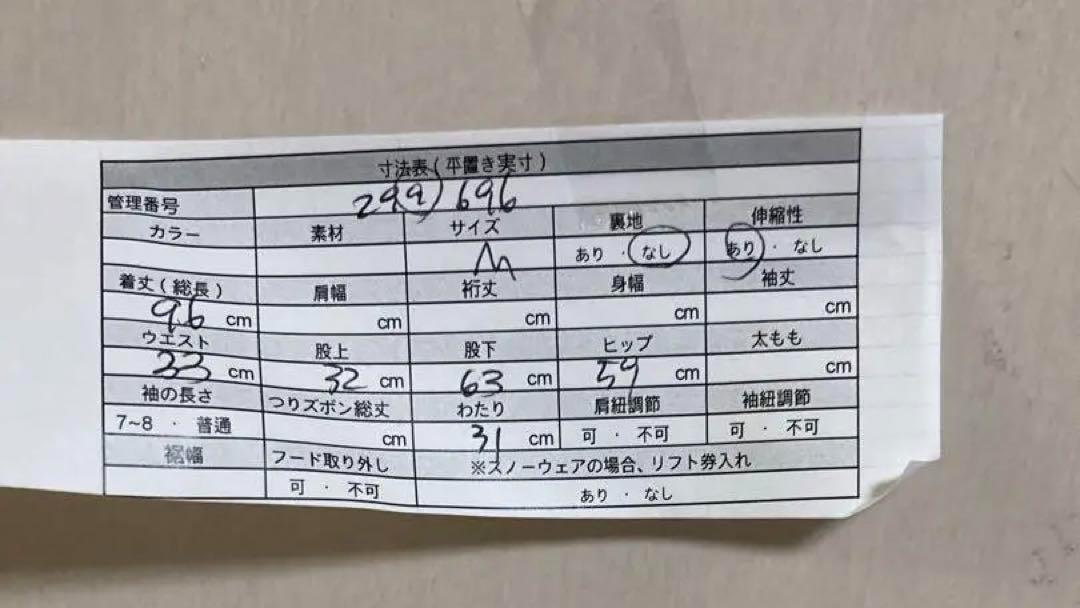 寸法表(平置き実寸)
管理番号 299) 696
カラー 素材 サイズ 裏地 伸縮性
M あり ・ なし あり ・ なし
着丈(総長) 肩幅 裄丈 身幅 袖丈
96 cm cm cm cm cm
ウエスト 股上 股下 ヒップ 太もも
33 cm 32 cm 63 cm 59 cm cm
袖の長さ つりズボン総丈 わたり 肩紐調節 袖紐調節
7~8 ・ 普通 cm 31 cm 可 ・ 不可 可 ・ 不可
裾幅 フード取り外し ※スノーウェアの場合、リフト券入れ
可 ・ 不可 あり ・ なし